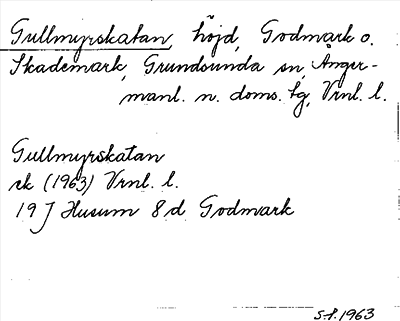 Gullmyrskatan, höjd, Godmark o.
Skademark, Grundsunda sn, Ånger-
manl. n. doms. tg, Vrnl. l.
Gullmyrskatan
ek (1963) Vrnl. l.
19 J Husum 8 d Godmark
S.f. 1963